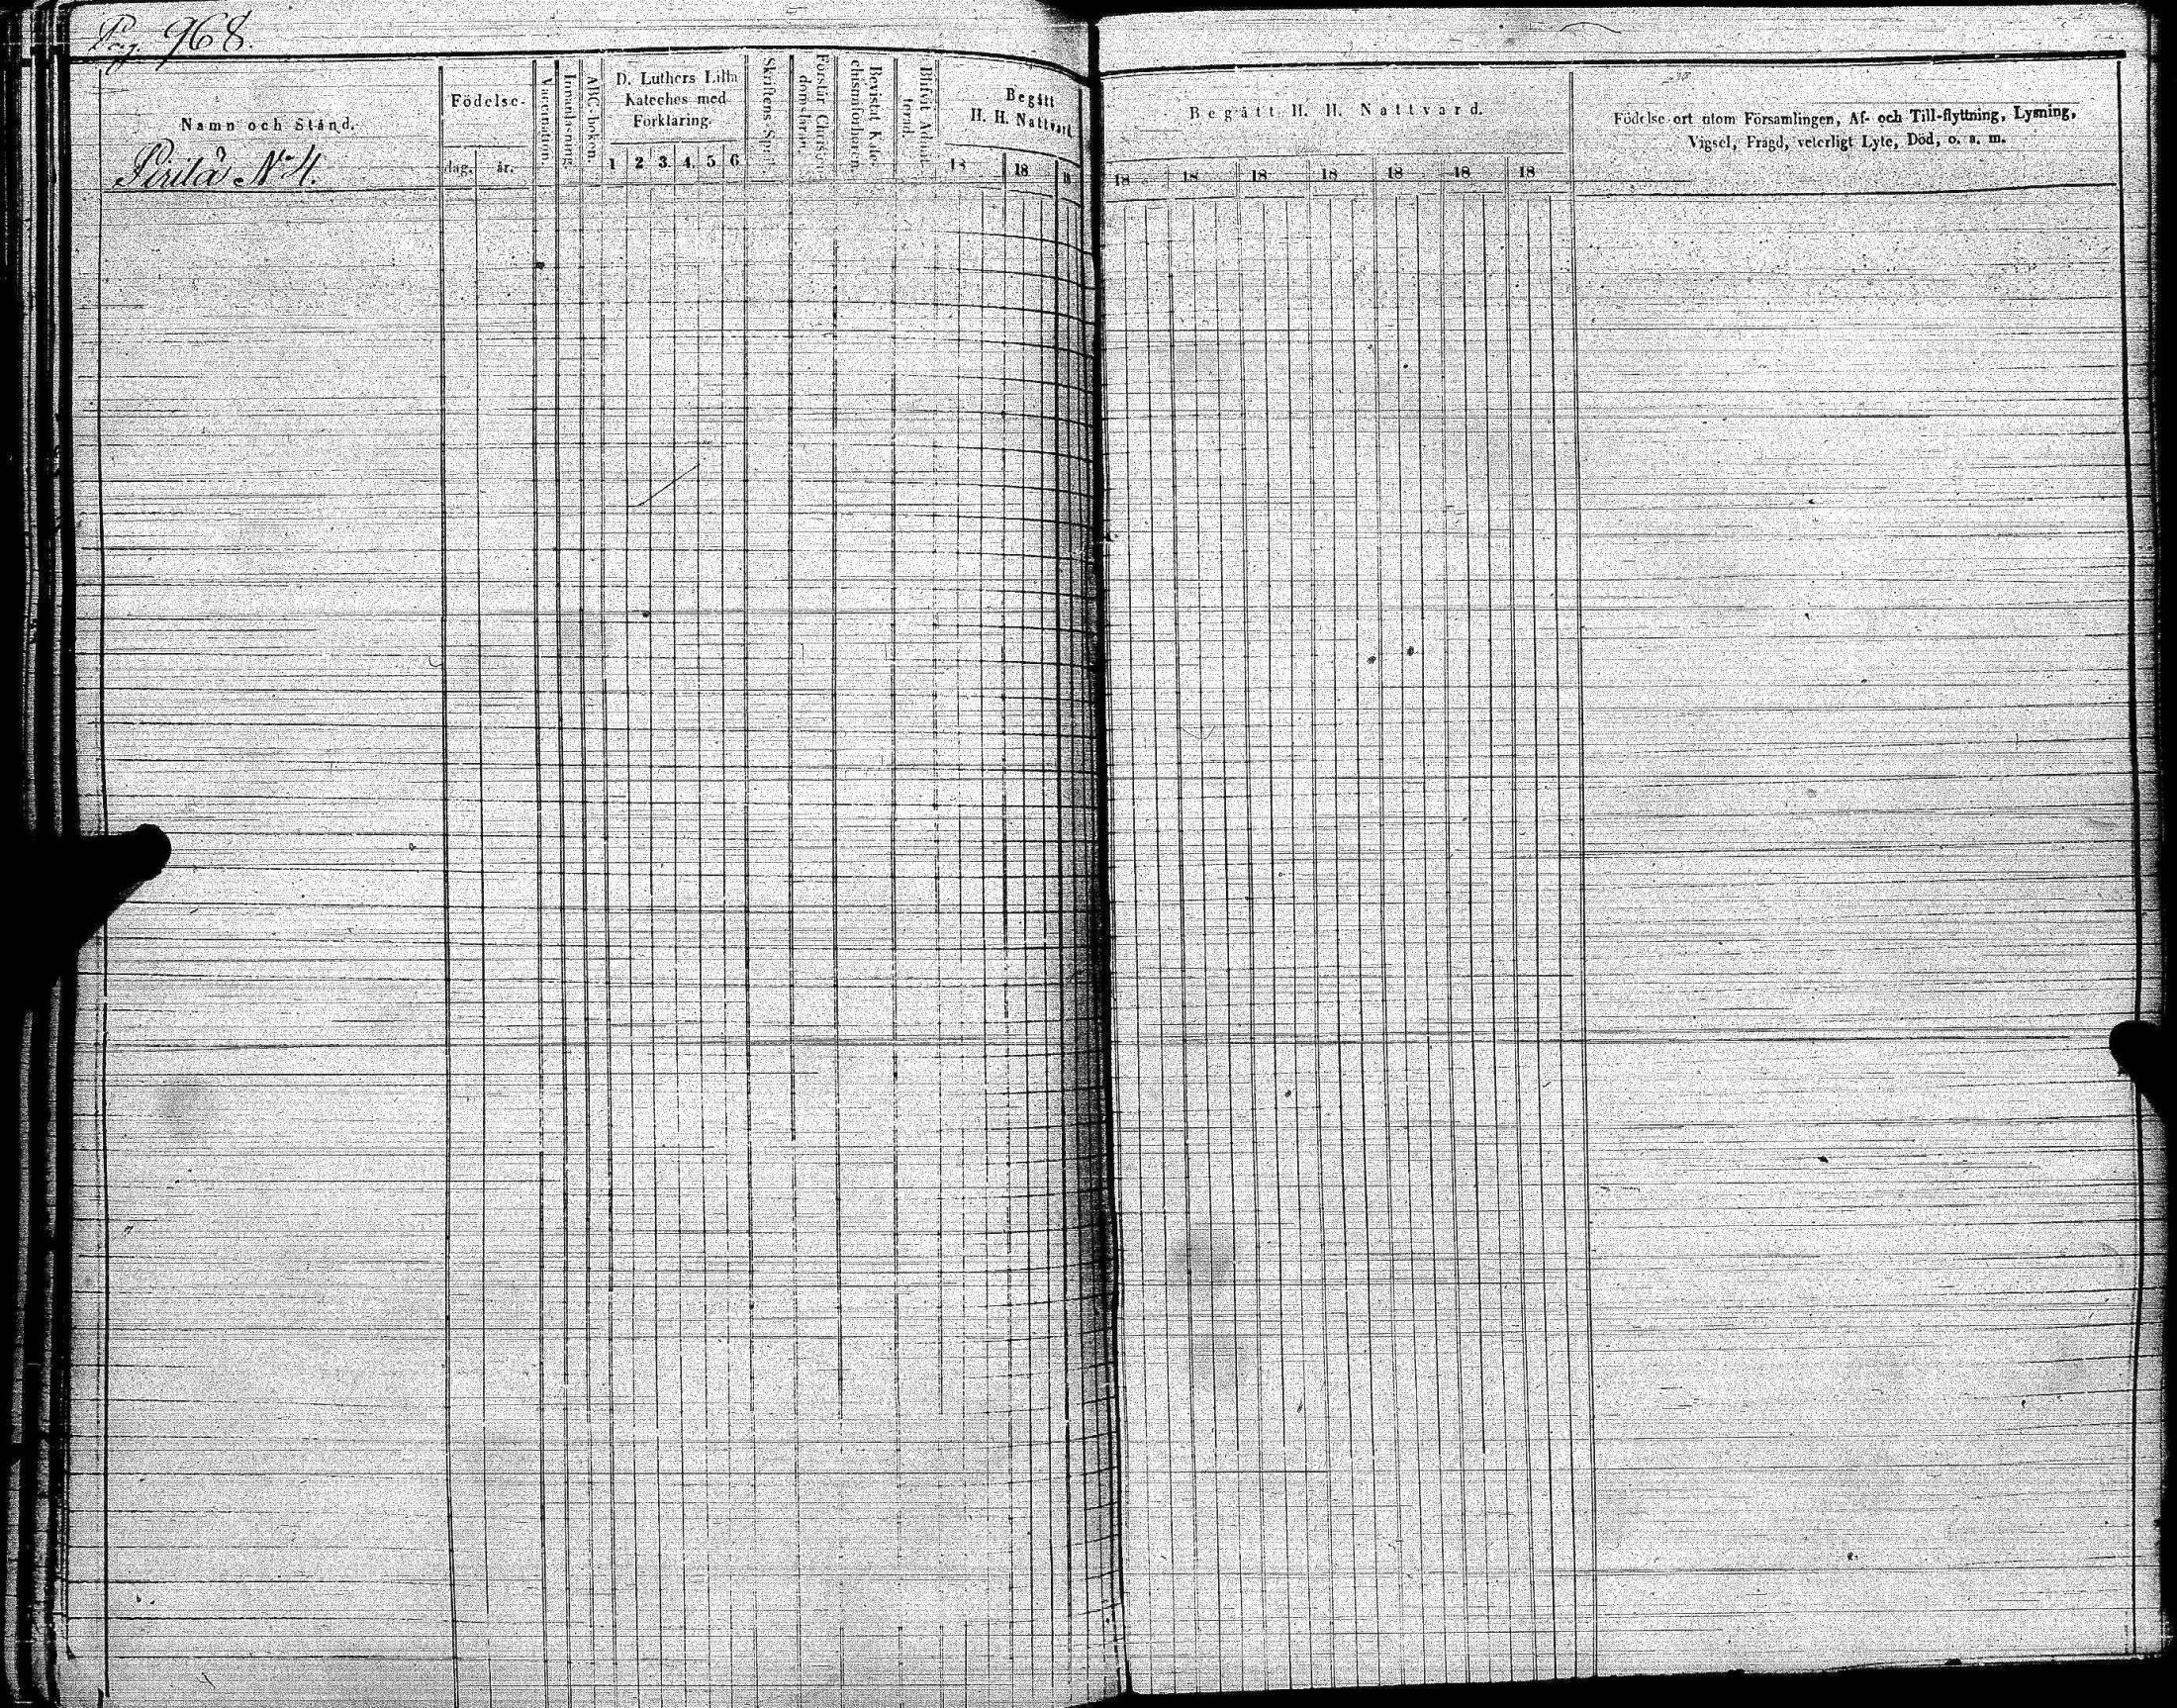 Pag. 968.
Namn och Stånd.
Pirilä No 4.
Födelse-
dag. år.
Vaccination.
Innanläsning.
ABC-boken.
D. Luthers Lilla
Kateches med
Förklaring.
1 2 3. 4. 5 6
Skriftens Språk.
Förstår Christen-
domsläran.
Bevistat Kate-
chismiförhören.
Blifvit Admit-
terad.
Begått
H. H. Nattvard.
18 18 18
Begått H. H. Nattvard.
18 18 18 18 18 18 18
Födelse-ort utom Församlingen, Af- och Till-flyttning, Lysning,
Vigsel, Frägd, veterligt Lyte, Död, o. s. m.